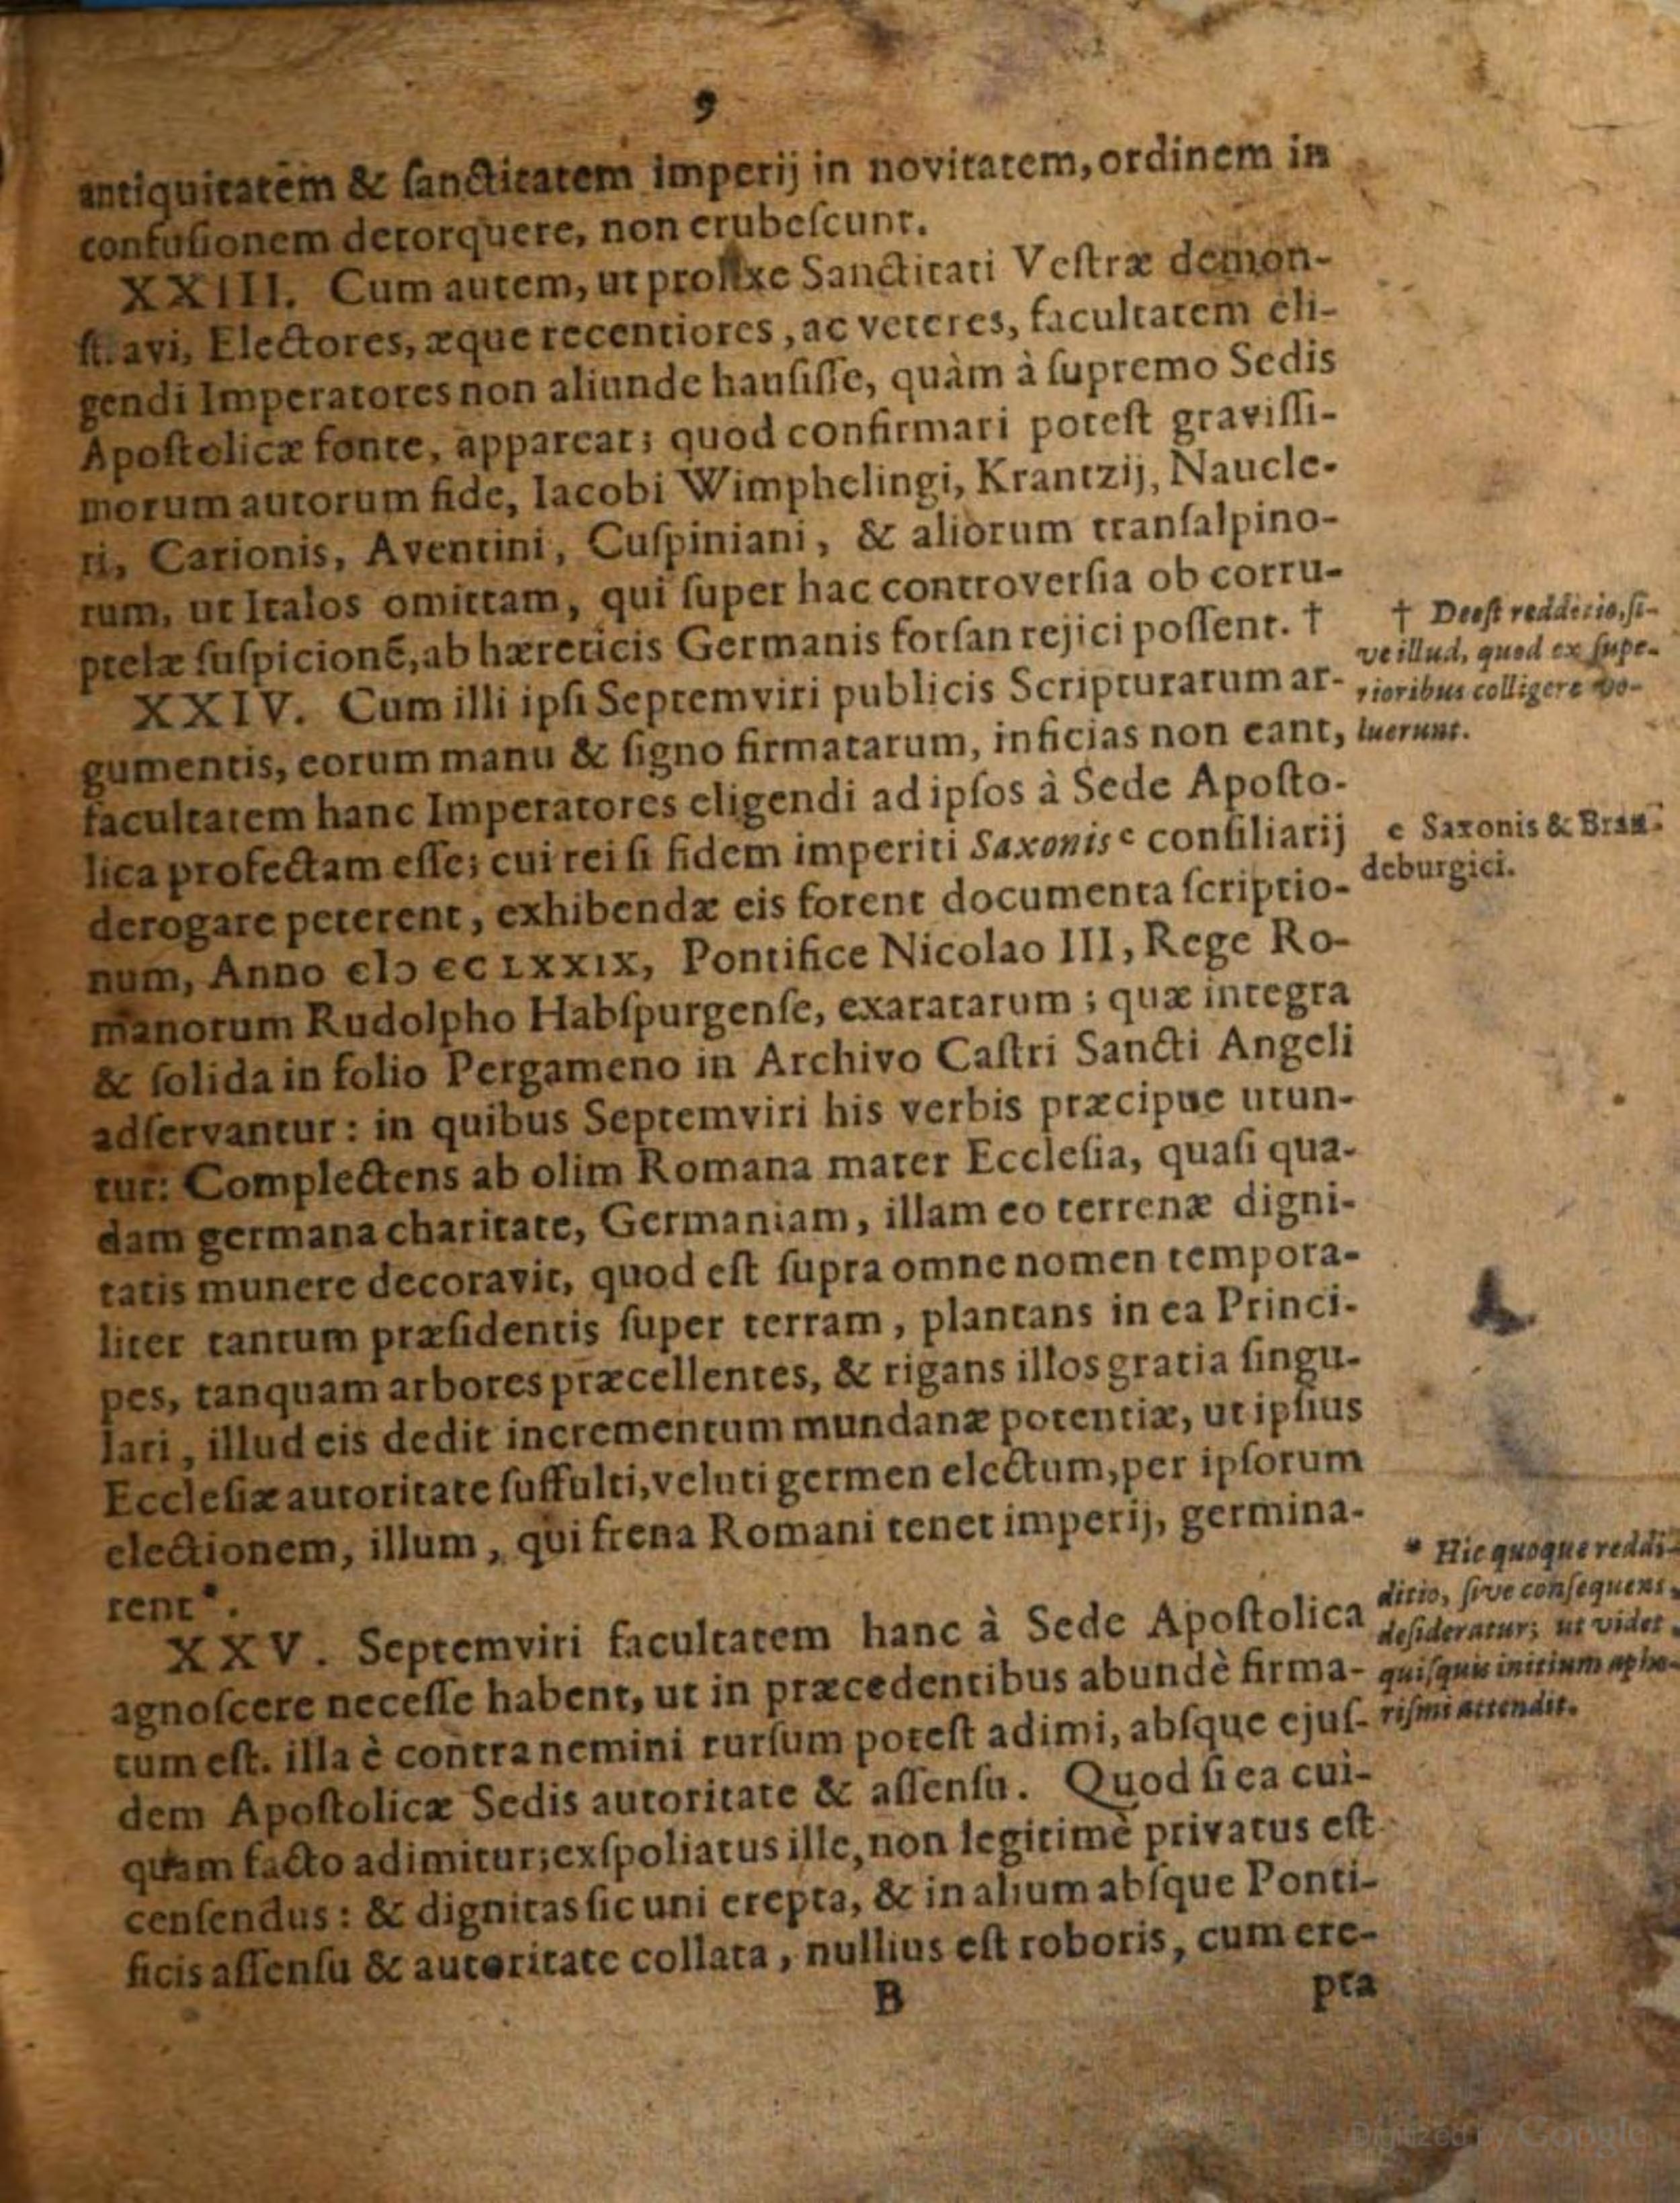 9
antiquitatem & ſanctitatem imperij in novitatem, ordinem in
confuſionem detorquere, non erubeſcunt.
XXIII. Cum autem, ut prolixe Sanctitati Veſtræ demon-
ſtravi, Electores, æque recentiores, ac veteres, facultatem eli-
gendi Imperatores non aliunde hauſiſſe, quàm à ſupremo Sedis
Apoſtolicæ fonte, appareat; quod confirmari poteſt graviſſi-
morum autorum fide, Iacobi Wimphelingi, Krantzij, Naucle-
ri, Carionis, Aventini, Cuſpiniani, & aliorum tranſalpino-
rum, ut Italos omittam, qui ſuper hac controverſia ob corru-
ptelæ ſuſpicionẽ, ab hæreticis Germanis forſan rejici poſſent. †
† Deeſt redditio, ſi-
ve illud, quod ex ſupe-
rioribus colligere vo-
luerunt.
XXIV. Cum illi ipſi Septemviri publicis Scripturarum ar-
gumentis, eorum manu & ſigno firmatarum, inficias non eant,
facultatem hanc Imperatores eligendi ad ipſos à Sede Apoſto-
lica profectam eſſe; cui rei ſi fidem imperiti Saxonis e conſiliarij
e Saxonis & Bran-
deburgici.
derogare peterent, exhibendæ eis forent documenta ſcriptio-
num, Anno cIↄ ccLXXIX, Pontifice Nicolao III, Rege Ro-
manorum Rudolpho Habſpurgenſe, exaratarum; quæ integra
& ſolida in folio Pergameno in Archivo Caſtri Sancti Angeli
adſervantur: in quibus Septemviri his verbis præcipue utun-
tur: Complectens ab olim Romana mater Eccleſia, quaſi qua-
dam germana charitate, Germaniam, illam eo terrenæ digni-
tatis munere decoravit, quod eſt ſupra omne nomen tempora-
liter tantum præſidentis ſuper terram, plantans in ea Princi-
pes, tanquam arbores præcellentes, & rigans illos gratia ſingu-
lari, illud eis dedit incrementum mundanæ potentiæ, ut ipſius
Eccleſiæ autoritate ſuffulti, veluti germen electum, per ipſorum
electionem, illum, qui frena Romani tenet imperij, germina-
rent*.
* Hic quoque reddi-
ditio, ſive conſequens,
deſideratur; ut videt
quiſquis initium apho-
riſmi attendit.
XXV. Septemviri facultatem hanc à Sede Apoſtolica
agnoſcere neceſſe habent, ut in præcedentibus abundè firma-
tum eſt. illa è contra nemini rurſum poteſt adimi, abſque ejuſ-
dem Apoſtolicæ Sedis autoritate & aſſenſu. Quod ſi ea cui-
quam facto adimitur; exſpoliatus ille, non legitimè privatus eſt
cenſendus: & dignitas ſic uni erepta, & in alium abſque Ponti-
ficis aſſenſu & autoritate collata, nullius eſt roboris, cum ere-
B
pta
Digitized by Google